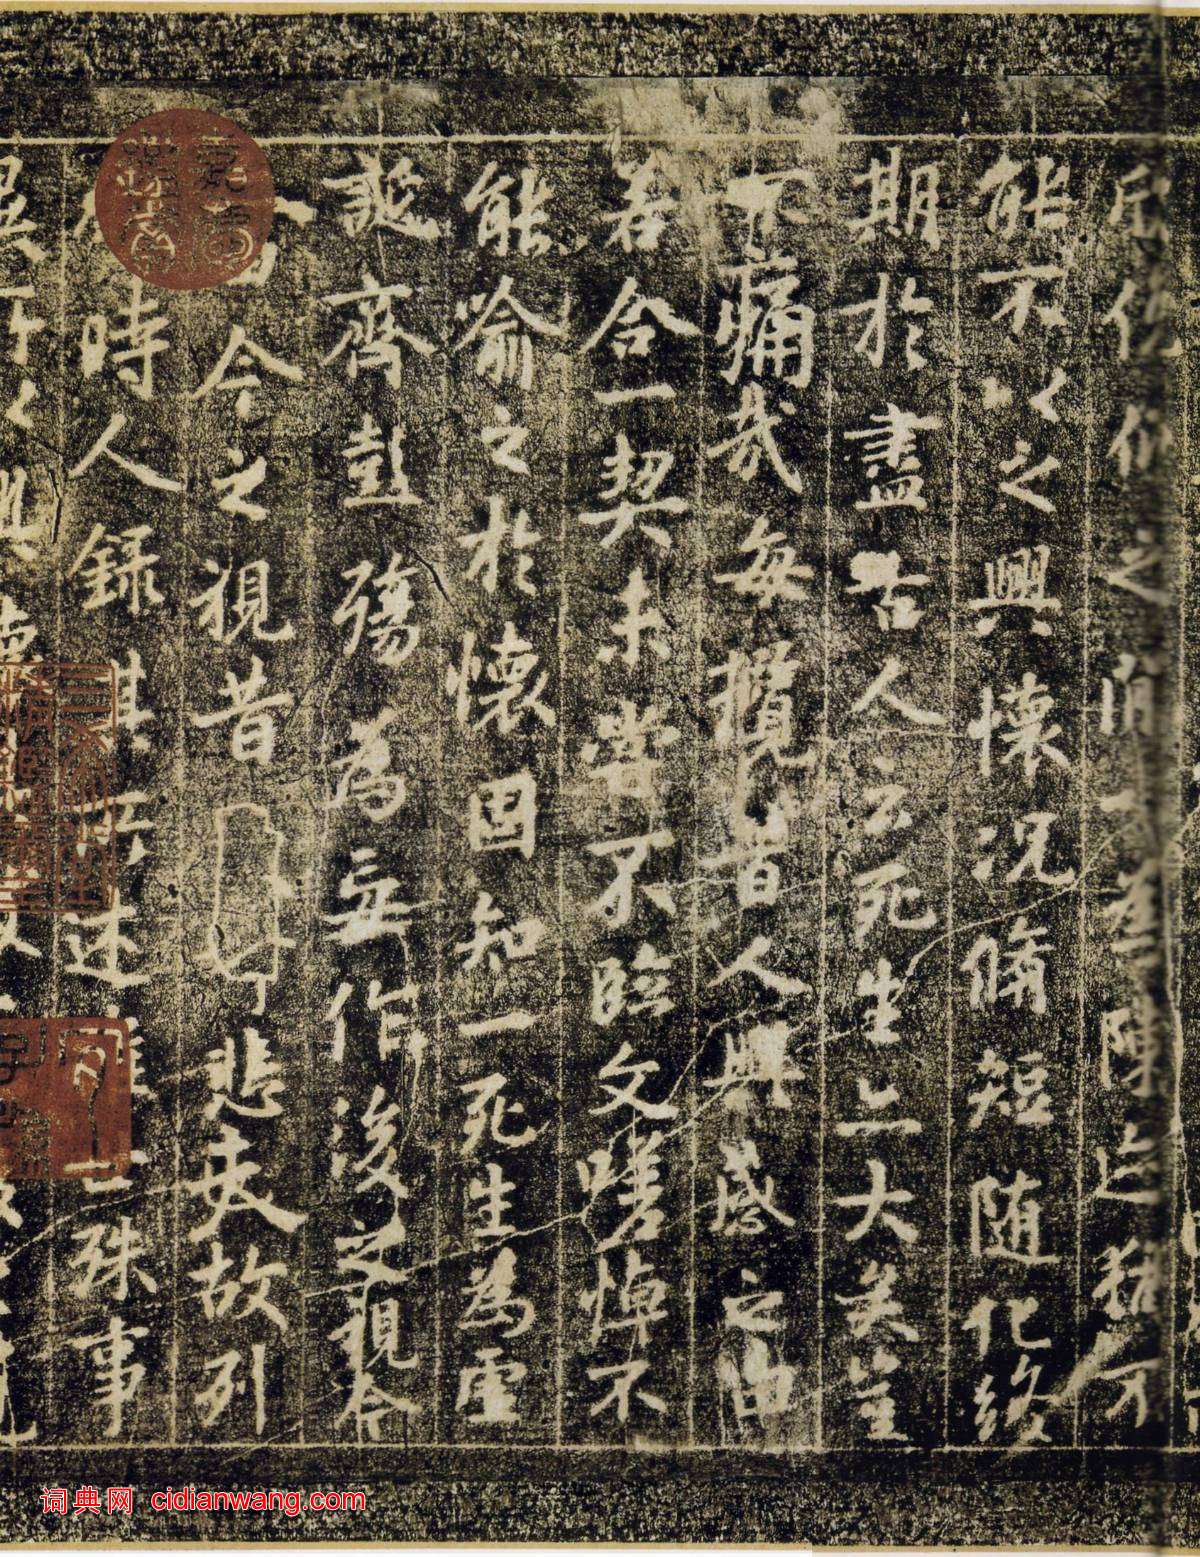 欣俛仰之間以為陳迹猶不
能不以之興懷況脩短随化終
期於盡古人云死生亦大矣豈
不痛哉每攬昔人興感之由
若合一契未嘗不臨文嗟悼不
能喻之於懷固知一死生為虛
誕齊彭殤為妄作後之視今
亦由今之視昔悲夫故列
敘時人録其所述雖世殊事
異所以興懷
词典网 cidianwang.com